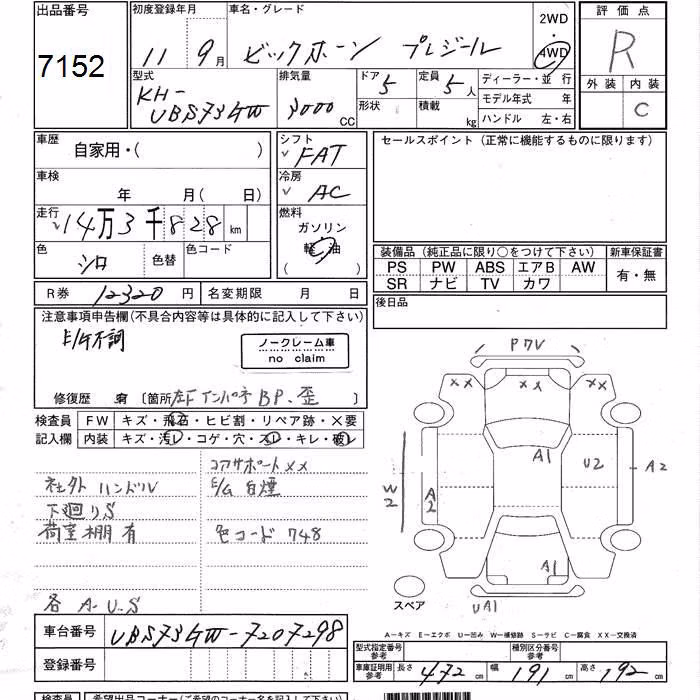 出品番号
7152
初度登録年月
11年 9月
車名・グレード
ビックホーン プレジール
2WD
・
4WD
評価点
R
外装 内装
C
型式
KH-
UBS73GW
排気量
3000 CC
ドア 5
形状
定員 5人
積載 kg
ディーラー・並行
モデル年式 年
ハンドル 左・右
車歴
自家用・( )
シフト
FAT
セールスポイント (正常に機能するものに限ります)
車検
年 月( 日)
冷房
AC
走行
14万3千828 km
燃料
ガソリン
軽油
( )
色
シロ
色替
色コード
装備品 (純正品に限り○をつけて下さい)
PS PW ABS エアB AW
SR ナビ TV カワ
新車保証書
有・無
R券 12320 円
名変期限 月 日
後日品
注意事項申告欄(不具合内容等は具体的に記入して下さい)
E/G不調
ノークレーム車
no claim
修復歴 有 [箇所 左F インパネ BP、歪]
検査員
記入欄
FW キズ・飛石・ヒビ割・リペア跡・×要
内装 キズ・汚レ・コゲ・穴・スレ・キレ・破レ
コアサポート××
社外 ハンドル
E/G 白煙
下廻りS
荷室棚有
色コード 748
各 A・U・S
PﾌV
×× ××
A1
U2
A2
W2
A2
A1
UA1
スペア
A-キズ E-エクボ U-凹み W-補修跡 S-サビ C-腐食 XX-交換済
車台番号 UBS73GW-7207298
登録番号
型式指定番号
参考
種別区分番号
参考
車庫証明用
参考
長さ 472 cm
幅 191 cm
高さ 192 cm
検査員
希望出品コーナー(ご希望のコーナーをご記入